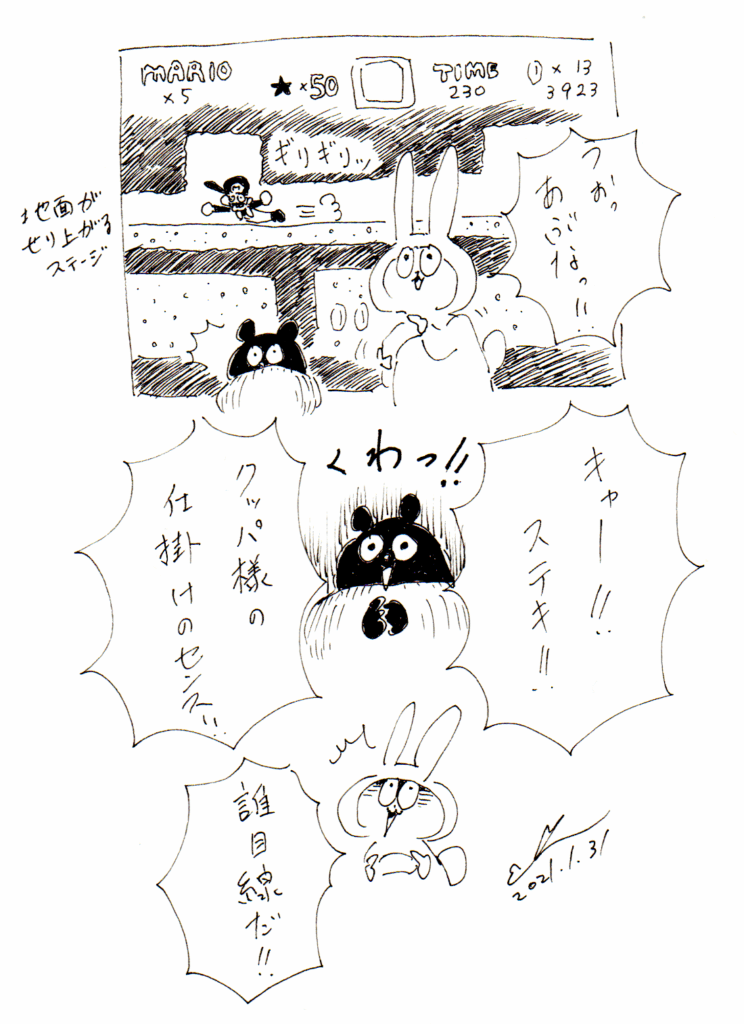 MARIO
×5
★×50
TIME
230
① × 13
3923
ギリギリッ
地面が
せり上がる
ステージ
うおっ
あぶなっ!!
キャー!!
ステキ!!
くわっ!!
クッパ様の
仕掛けのセンス!!
誰目線だ!!
2021.1.31